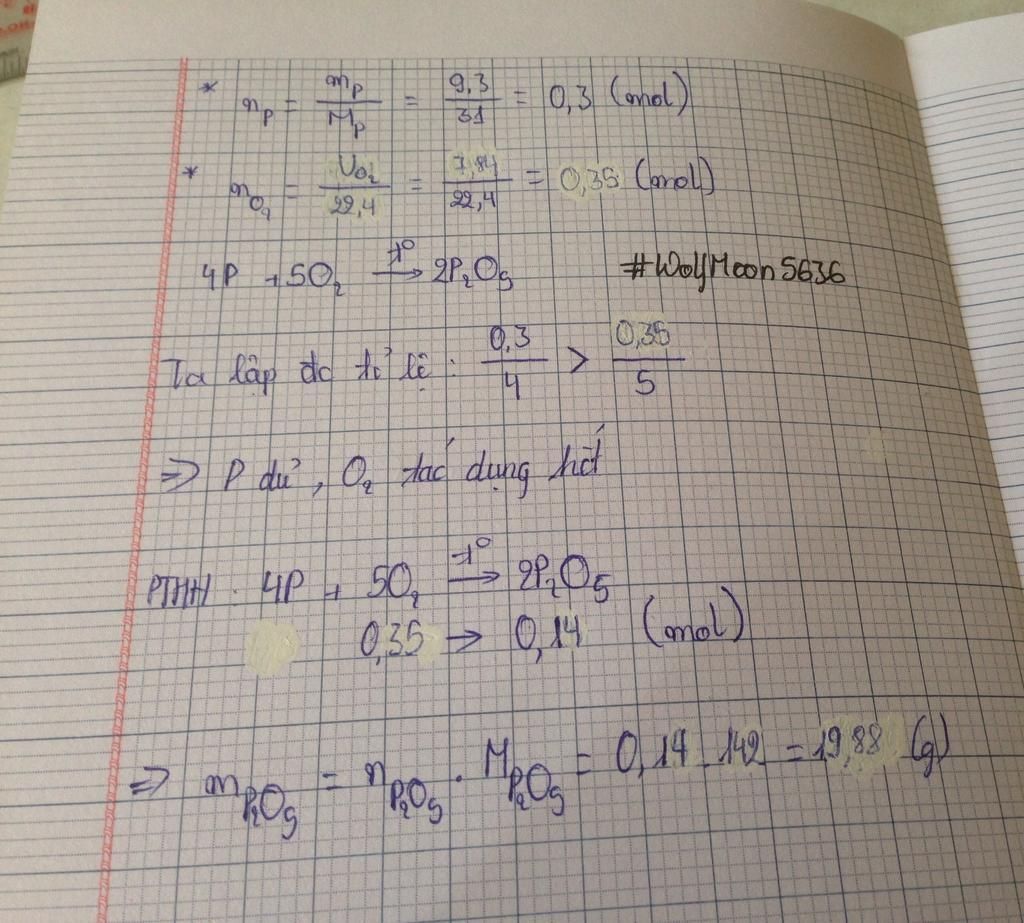 * n_P = m_P / M_P = 9,3 / 31 = 0,3 (mol)
* n_O₂ = V_O₂ / 22,4 = 7,84 / 22,4 = 0,35 (mol)
4P + 5O₂ t° → 2P₂O₅ #WolfMoon5636
Ta lập đc tỉ lệ : 0,3 / 4 > 0,35 / 5
=> P dư , O₂ tác dụng hết
PTHH : 4P + 5O₂ t° → 2P₂O₅
0,35 → 0,14 (mol)
=> m_P₂O₅ = n_P₂O₅ . M_P₂O₅ = 0,14 . 142 = 19,88 (g)